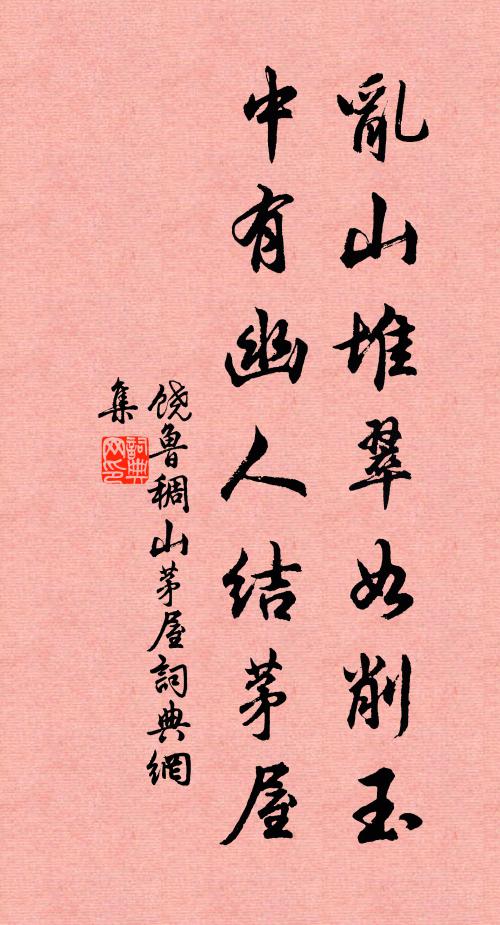 亂山堆翠如削玉
中有幽人结茅屋
饶鲁稠山茅屋詞典網
集
詞典網印